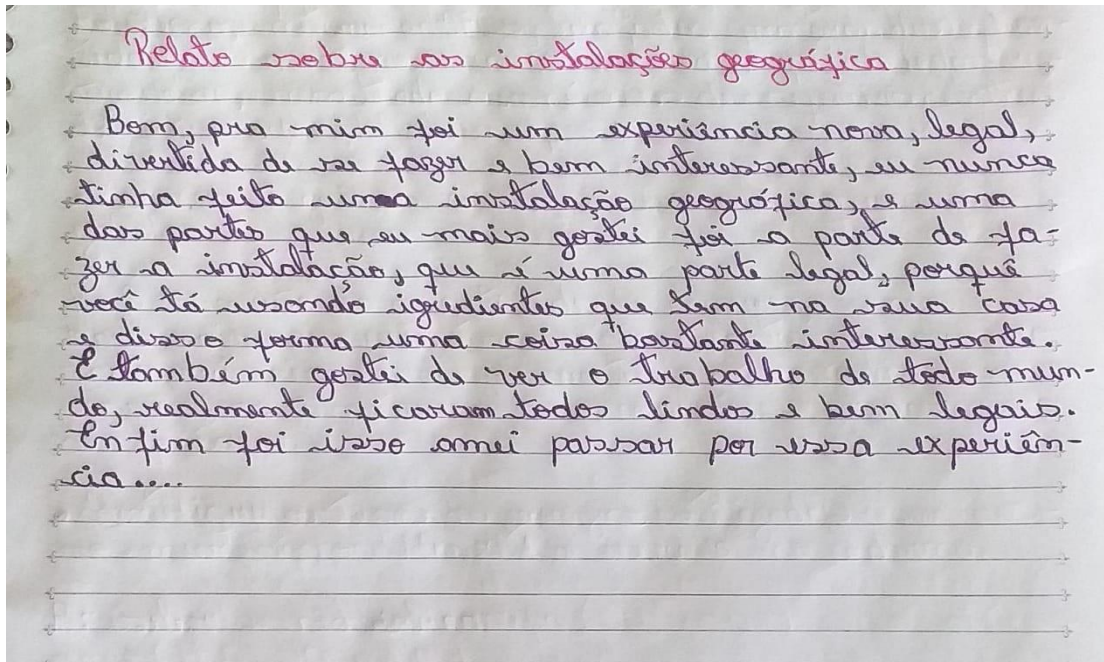 Relato sobre as instalações geográfica
Bom, pra mim foi um experiência nova, legal,
divertida de se fazer e bem interessante, eu nunca
tinha feito uma instalação geográfica, e uma
das partes que eu mais gostei foi a parte de fa-
zer a instalação, que é uma parte legal, porquê
você tá usando igredientes que tem na sua casa
e disso forma uma coisa bastante interessante.
E também gostei de ver o trabalho de todo mun-
do, realmente ficaram todos lindos e bem legais.
Enfim foi isso amei passar por essa experiên-
cia....